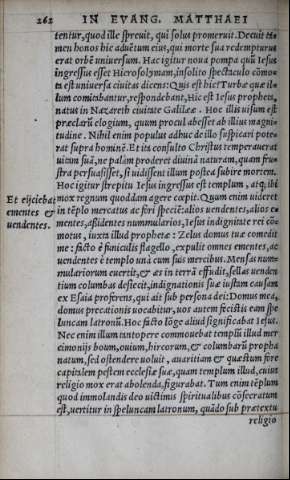 262 IN EVANG. MATTHAEI
tenitur, quod ille spreuit, qui solus promeruit. Decuit ta-
men honos hic aduētum eius, qui morte sua redempturus
erat orbē uniuersum. Hac igitur noua pompa quū Iesus
ingressus esset Hierosolymam, insolito spectaculo cōmo-
ta est uniuersa ciuitas dicens: Quis est hic? Turbæ quæ il-
lum comitabantur, respondebant, Hic est Iesus propheta,
natus in Nazareth ciuitate Galilææ. Hoc illis uisum est
præclarū elogium, quum procul abesset ab illius magni-
tudine. Nihil enim populus adhuc de illo suspicari pote-
rat supra hominē. Et ita consulto Christus temperauerat
uitam suā, ne palàm proderet diuinā naturam, quam fru-
stra persuasisset, si uidissent illum postea subire mortem.
Hoc igitur strepitu Iesus ingressus est templum, atq; ibi
Et eijciebat mox regnum quoddam agere cœpit. Quum enim uideret
ementes & in tēplo mercatus ac fori speciē: alios uendentes, alios e-
uendentes. mentes, aßidentes nummularios, Iesus indignitate rei cō-
motus, iuxta illud prophetæ: Zelus domus tuæ comedit
me: facto è funiculis flagello, expulit omnes ementes, ac
uendentes è templo unà cum suis mercibus. Mensas num-
mulariorum euertit, & æs in terrā effudit, sellas uenden
tium columbas desiecit, indignationis suæ iustam causam
ex Esaia proferens, qui ait sub persona dei: Domus mea,
domus precationis uocabitur, uos autem fecistis eam spe
luncam latronū. Hoc facto lōge aliud significabat Iesus.
Nec enim illum tantopere commouebat templū illud mer
cimonijs boum, ouium, hircorum, & columbarū propha
natum, sed ostendere uoluit, auaritiam & quæstum fore
capitalem pestem ecclesiæ suæ, quam templum illud, cuius
religio mox erat abolenda, figurabat. Tum enim tēplum
quod immolandis deo uictimis spiritualibus cōsecratum
est, uertitur in speluncam latronum, quādo sub prætextu
religio